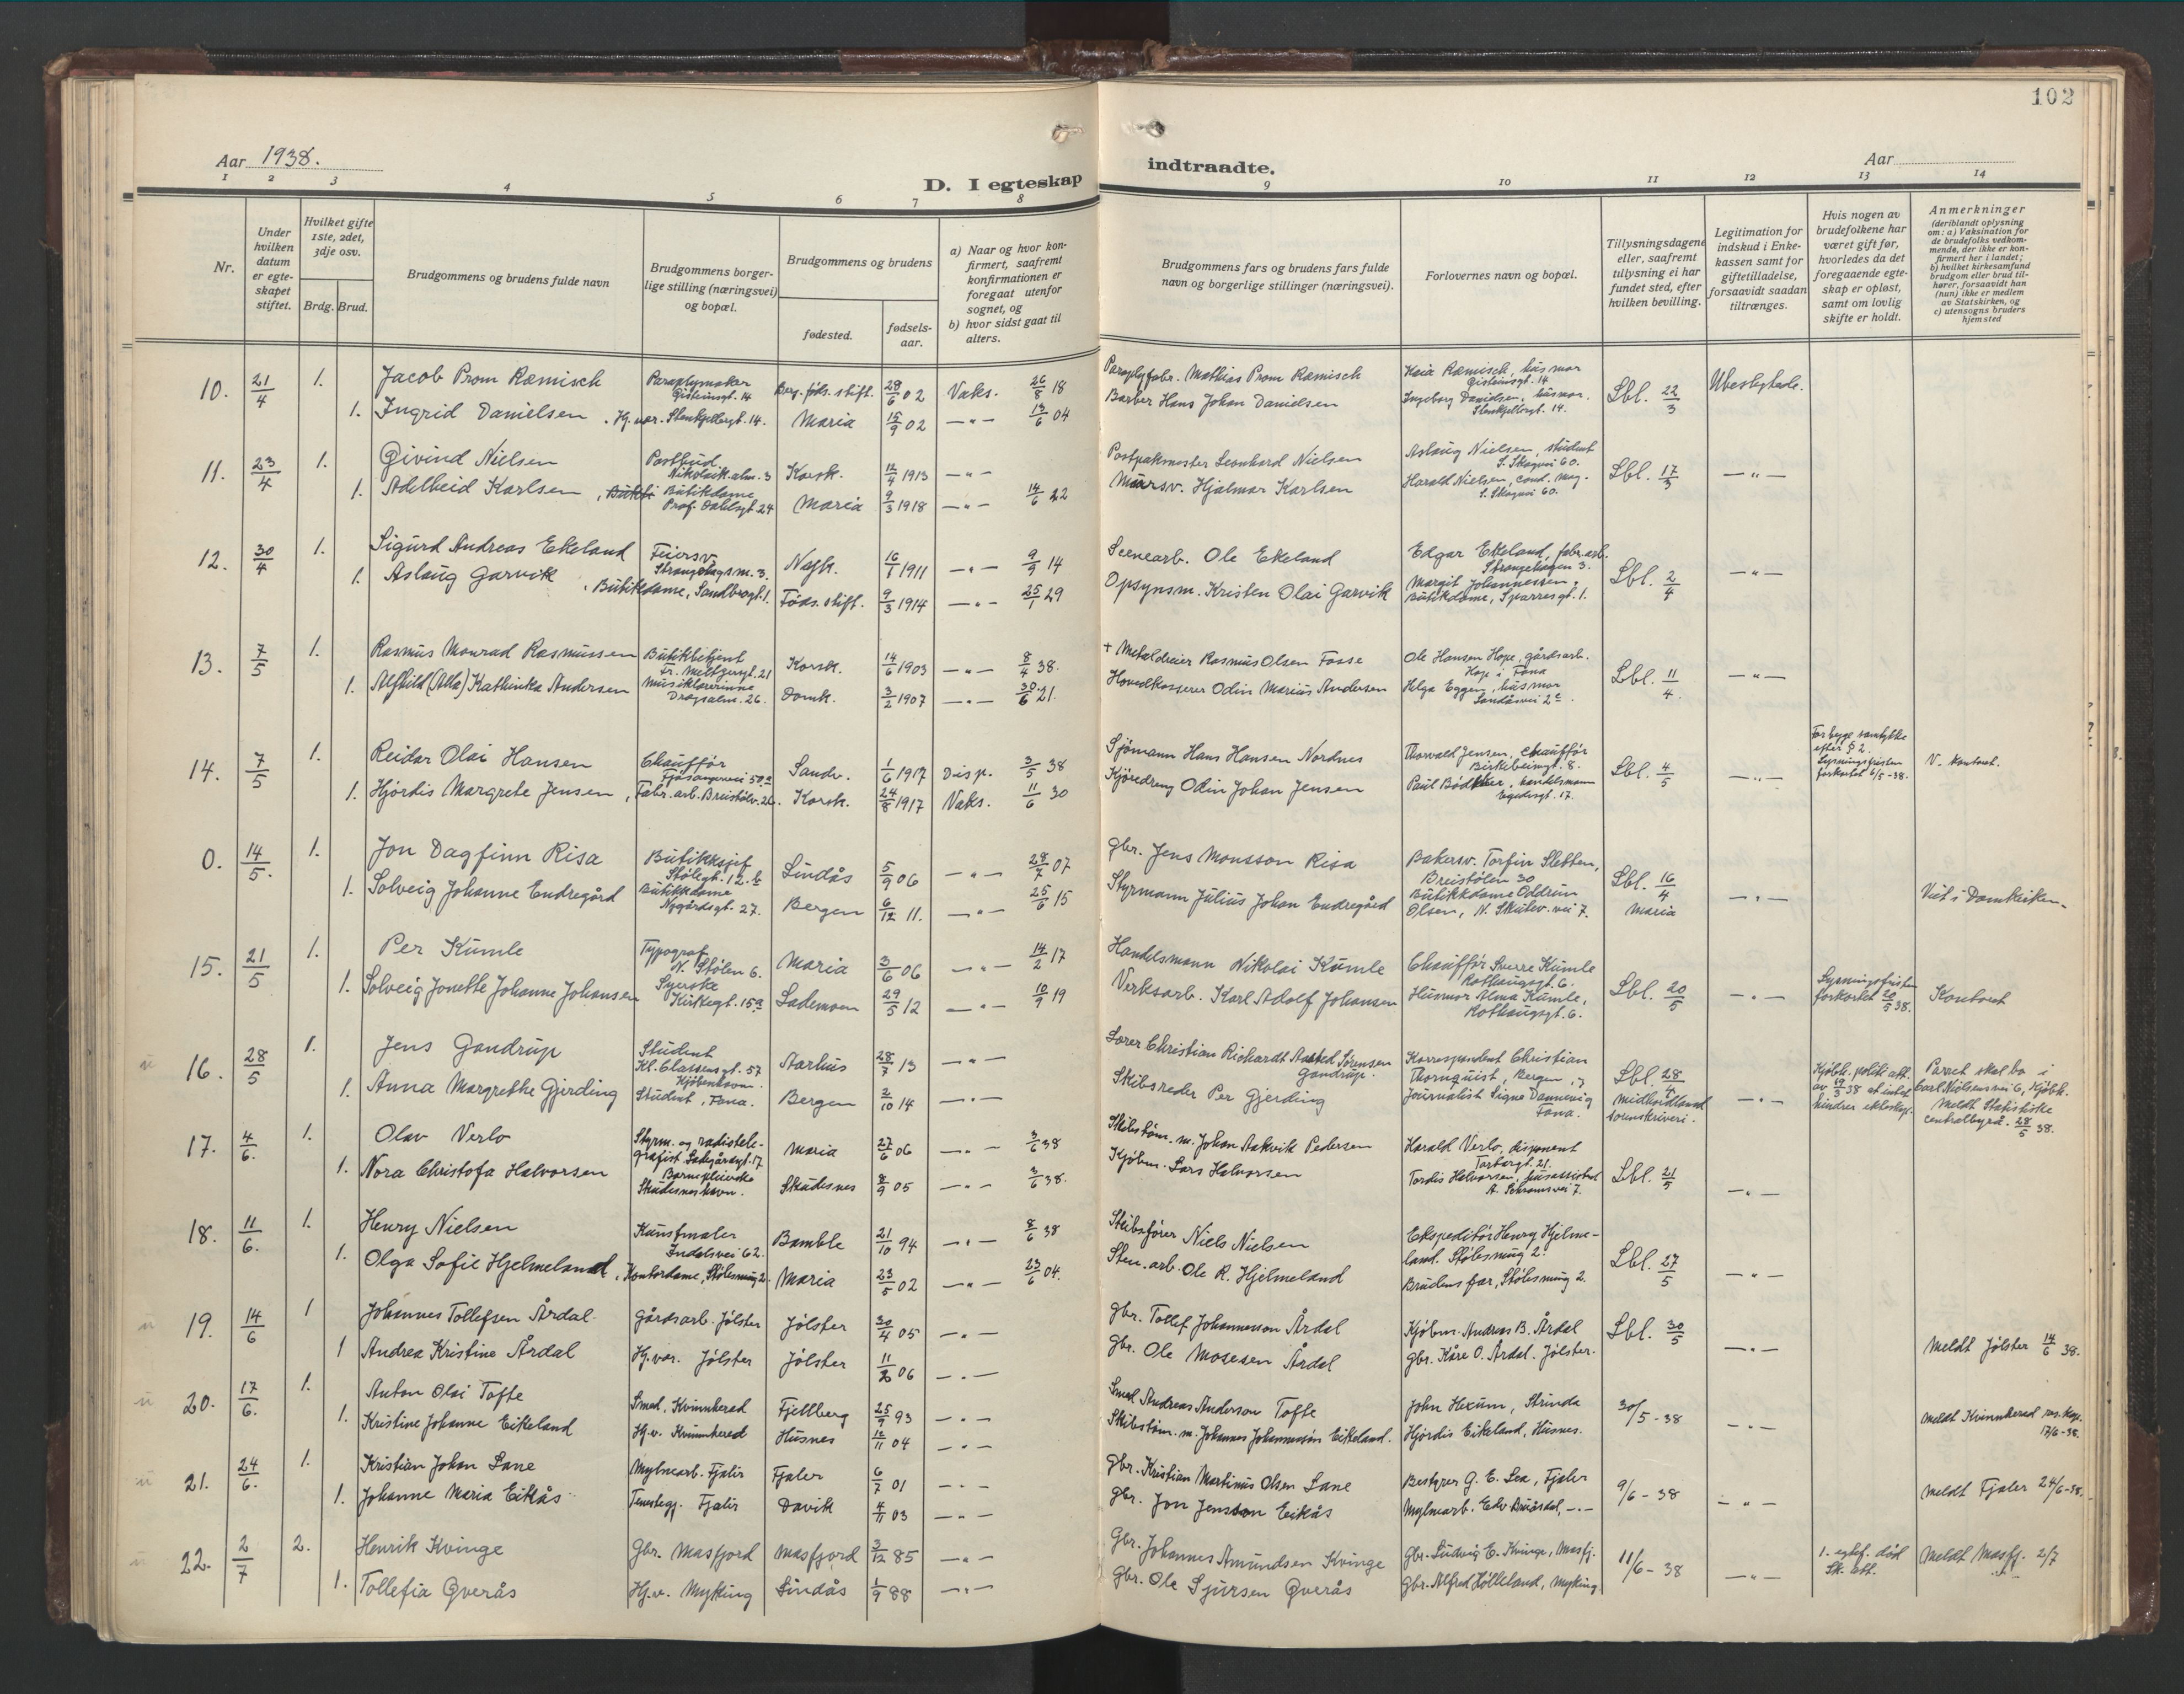 102
Aar 1938.
D. I egteskap indtraadte.
Aar
1 2 3 4 5 6 7 8 9 10 11 12 13 14
Nr.
Under hvilken datum er egteskapet stiftet.
Hvilket gifte 1ste, 2det, 3dje osv.
Brdg. Brud.
Brudgommens og brudens fulde navn
Brudgommens borgerlige stilling (næringsvei) og bopæl.
Brudgommens og brudens
fødested.
fødselsaar.
a) Naar og hvor konfirmert, saafremt konfirmationen er foregaat utenfor sognet, og
b) hvor sidst gaat til alters.
Brudgommens fars og brudens fars fulde navn og borgerlige stillinger (næringsvei).
Forlovernes navn og bopæl.
Tillysningsdagene eller, saafremt tillysning ei har fundet sted, efter hvilken bevilling.
Legitimation for indskud i Enkekassen samt for giftetilladelse, forsaavidt saadan tiltrænges.
Hvis nogen av brudefolkene har været gift før, hvorledes da det foregaaende egteskap er opløst, samt om lovlig skifte er holdt.
Anmerkninger
(deriblandt oplysning om: a) Vaksination for de brudefolks vedkommende, der ikke er konfirmert her i landet; b) hvilket kirkesamfund brudgom eller brud tilhører, forsaavidt han (hun) ikke er medlem av Statskirken, og c) utensogns bruders hjemsted
10. 21/4 1. Jacob Prom Ræmisch Paraplymaker Gisteinsgt. 14 Berg. føds. stift. 28/6 02 Vaks. 26/8 18 Paraplyfabr. Mathias Prom Ræmisch Kaia Ræmisch, husmor Gisteinsgt. 14 Lbl. 22/3 Ubeslegtede.
1. Ingrid Danielsen, Hj. vær. Stenkjellergt. 14. Maria 15/9 02 —"— 13/6 04 Barber Hans Johan Danielsen Ingeborg Danielsen, husmor. Stenkjellergt. 14.
11. 23/4 1. Øivind Nielsen Postbud Nikolaik.alm. 3 Korsk. 12/4 1913 —"— Postpakmester Leonhard Nielsen Aslaug Nielsen, student S. Skogvei 60. Lbl. 17/3 —"—
1. Adelheid Karlsen, Butikdame Prof. Dahlsgt 24 Maria 9/3 1918 —"— 14/6 22 Mursv. Hjalmar Karlsen Harald Nielsen, cand. mag. S. Skogvei 60.
12. 30/4 1. Sigurd Andreas Ekeland Feiersv. Strangehags m. 3. Nykk. 16/1 1911 —"— 9/9 14 Scenearb. Ole Ekeland Edgar Ekeland, fabr. arb. Strangehagen 3. Lbl. 2/4 —"—
1. Aslaug Garvik, Butikdame, Sandbrogt. 1. Føds. stift. 9/3 1914 —"— 25/1 29 Opsynsm. Kristen Olai Garvik Margit Johannessen, Butikdame, Sparresgt. 1.
13. 7/5 1. Rasmus Monrad Rasmussen Butikbetjent Fr. Meltzersgt. 21 Korsk. 14/6 1903 —"— 8/4 38. + Metaldreier Rasmus Olsen Fosse Ole Hansen Hope, gårdsarb. Hop i Fana Lbl. 11/4 —"—
1. Alfhild (Alla) Kathinka Andersen Musiklærerinne Dragsalm. 26. Domk. 3/2 1907 —"— 30/6 21. Hovedkasserer Odin Marius Andersen Helga Eggen, husmor Landåsvei 2c.
14. 7/5 1. Reidar Olai Hansen Chauffør Fjøsangervei 50a Sandv. 1/6 1917 Disp. 3/5 38 Sjømann Hans Hansen Nordnes Thorvald Jensen, chauffør Birkebeinergt. 8. Lbl. 4/5 —"— samtykke efter § 2. Lysningsfristen forkortet 6/5-38. V. kontoret.
1. Hjørdis Margrete Jensen, Fabr. arb. Breistølv. 26. Korsk. 24/8 1917 Vaks. 11/6 30 Kjøredreng Odin Johan Jensen Paul Bødtker, handelsmann Egedesgt. 17.
0. 14/5. 1. Jon Dagfinn Risa Butikksjef Stølegt. 12. b Lindås 5/9 06 —"— 28/7 07 Gbr. Jens Monsson Risa Bakersv. Torfin Sletten, Breistølen 30 Lbl. 16/4 Maria —"— Viet i Domkirken.
1. Solveig Johanne Endregård Butikkdame Nygårdsgt. 27. Bergen 6/12 11. —"— 25/6 15 Styrmann Julius Johan Endregård Butikkdame Oddrun Olsen, N. Skutev. vei 7.
15. 21/5 1. Per Kumle Typograf N. Stølen 6. Maria 3/6 06 —"— 14/2 17 Handelsmann Nikolai Kumle Chauffør Sverre Kumle Rothaugsgt. 6. Lbl. 20/5 —"— Lysningsfristen forkortet 20/5 38. Kontoret
1. Solveig Jonette Johanne Johansen Syerske Kirkegt. 15a Lademoen 29/5 12 —"— 10/9 19 Verksarb. Karl Adolf Johansen Husmor Alma Kumle, Rothaugsgt. 6.
16. 28/5 1. Jens Gandrup Student Kl. Classensgt. 57 Kjøbenhavn. Aarhus 28/7 13 —"— Lærer Christian Richardt Aasted Sørensen Gandrup. Korrespondent Christian Thornquist, Bergen, Lbl. 28/4 Midhordland sorenskriveri. —"— Kjøbh. politi att. av 19/3 38 at intet hindrer ekteskap. Parret skal bo i Carl Nielsensvei 6, Kjøbh. Meldt Statistiske centralbyrå. 28/5 38.
1. Anna Margrethe Gjerding Student, Fana. Bergen 2/10 14 —"— Skibsreder Per Gjerding Journalist Signe Dannevig Fana.
17. 4/6. 1. Olav Verlo Styrm. og radiotelegrafist Ladegårdsgt. 17 Maria 27/6 06 —"— 3/6 38 Skibstøm. m. Johan Aakvik Pedersen Harald Verlo, disponent Tartargt. 21. Lbl. 21/5 —"—
1. Nora Christofa Halvorsen Barnepleierske Skudesneshavn. Skudesnes 8/9 05 —"— 3/6 38. Kjøbm. Lars Halvorsen Tordis Halvorsen, A. Schramsvei 7.
18. 11/6. 1. Henry Nielsen Kunstmaler Indalsvei 62. Bamble 21/10 94 —"— 8/6 38 Skibsfører Niels Nielsen Ekspeditør Henry Hjelmeland. Stølesmug 2. Lbl. 27/5 —"—
1. Olga Sofie Hjelmeland, Kontordame, Stølesmug 2. Maria 23/5 02 —"— 23/6 04. Sten. arb. Ole R. Hjelmeland Brudens far, Stølesmug 2.
19. 14/6 1 Johannes Tollefsen Årdal. Gårdsarb. Jølster Jølster 30/4 05 —"— Gbr. Tollef Johannesson Årdal Kjøbm. Andreas B. Årdal Lbl. 30/5 —"— Meldt Jølster 14/6 38.
1 Andrea Kristine Årdal Hj. vær. Jølster Jølster 11/2 06 —"— Gbr. Ole Mosesen Årdal Gbr. Kåre O. Årdal. Jølster.
20. 17/6. 1. Anton Olai Tofte Smed, Kvinnherad Fjellberg 25/9 93 —"— Smed Andreas Anderson Tofte John Hexum, Strinda 30/5-38 —"— Meldt Kvinnherad res. kap. 17/6-38.
1. Kristine Johanne Eikeland Hj. v. Kvinnherad Husnes 12/11 04 —"— Skibstøm. m. Johannes Johannessøn Eikeland. Hjørdis Eikeland, Husnes.
21. 24/6. 1. Kristian Johan Lane Mylnearb. Fjaler Fjaler 6/7 01 —"— Gbr. Kristian Martinus Olsen Lane Bestyrer G. E. Lea, Fjaler 9/6-38 —"— Meldt Fjaler 24/6-38.
1. Johanne Maria Eikås Tenestegj. Fjaler Davik 4/11 03 —"— Gbr. Jon Jensson Eikås Mylnearb. Edv —"—
22. 2/7 2. Henrik Kvinge Gbr. Masfjord Masfjord 3/12 85 —"— Gbr. Johannes Amundsen Kvinge Gbr. Ludvig E. Kvinge, Masfj. 11/6-38 —"— 1. egtef. død Sk. att. Meldt Masfj. 2/7
1. Tollefia Qverås Hj. v. Myking Lindås 1/9 88 —"— Gbr. Ole Sjursen Qverås Gbr. Alfred Hølleland, Myking